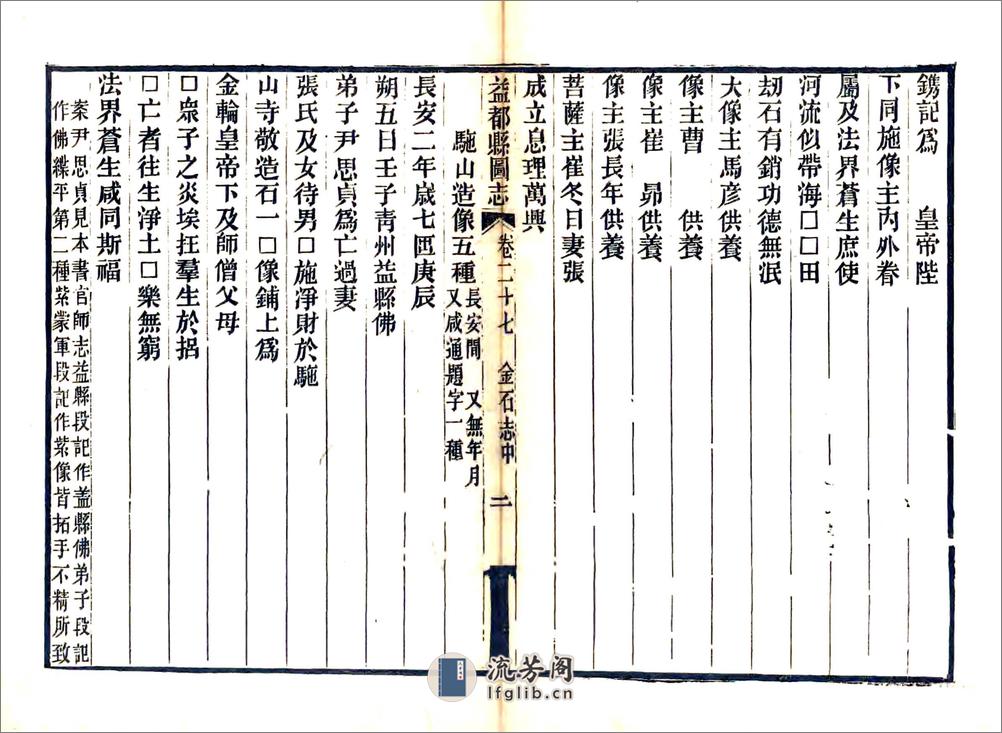 鐫記爲　　皇帝陛
下同施像主內外眷
屬及法界蒼生庶使
河流似帶海□□田
劫石有銷功德無泯
大像主馬彥供養
像主曹　　供養
像主崔　昴供養
像主張長年供養
菩薩主崔冬日妻張
成立息理萬興
益都縣圖志　卷二十七　金石志中　二
駞山造像五種　長安間　又無年月
又咸通題字一種
長安二年歲七匝庚辰
朔五日壬子青州益縣佛
弟子尹思貞爲亡過妻
張氏及女待男□施凈財於駞
山寺敬造石一□像鋪上爲
金輪皇帝下及師僧父母
□衆子之炎埃抂羣生於㧛
□亡者往生淨土□樂無窮
法界蒼生咸同斯福
案尹思貞見本書官師志益縣段記作盖縣佛弟子段記
作佛㸃平第二種紫蒙軍段記作紫像皆拓手不精所致
流芳阁
lfglib.cn